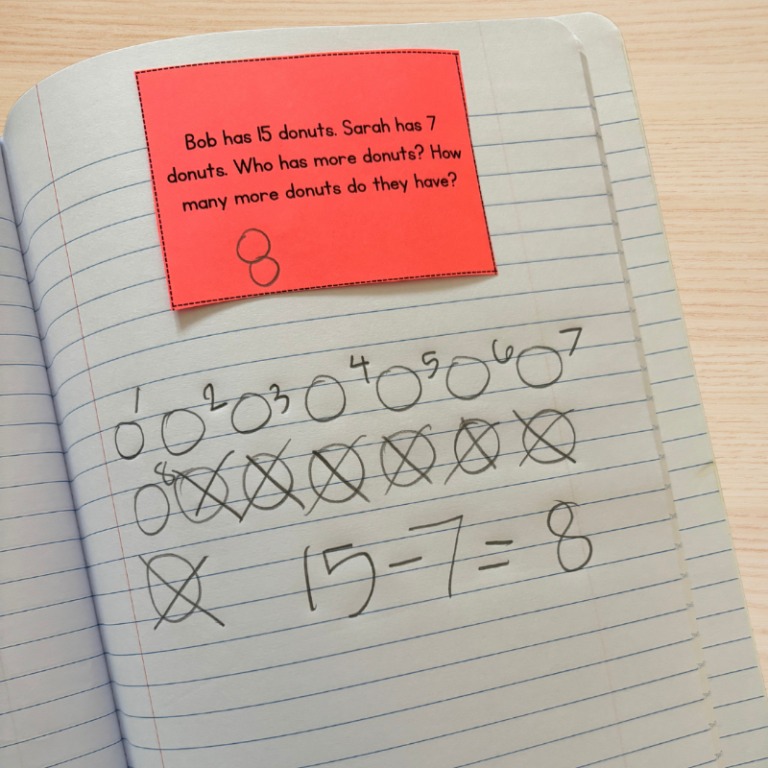 Bob has 15 donuts. Sarah has 7
donuts. Who has more donuts? How
many more donuts do they have?
8
1 2 3 4 5 6 7
8
15-7=8